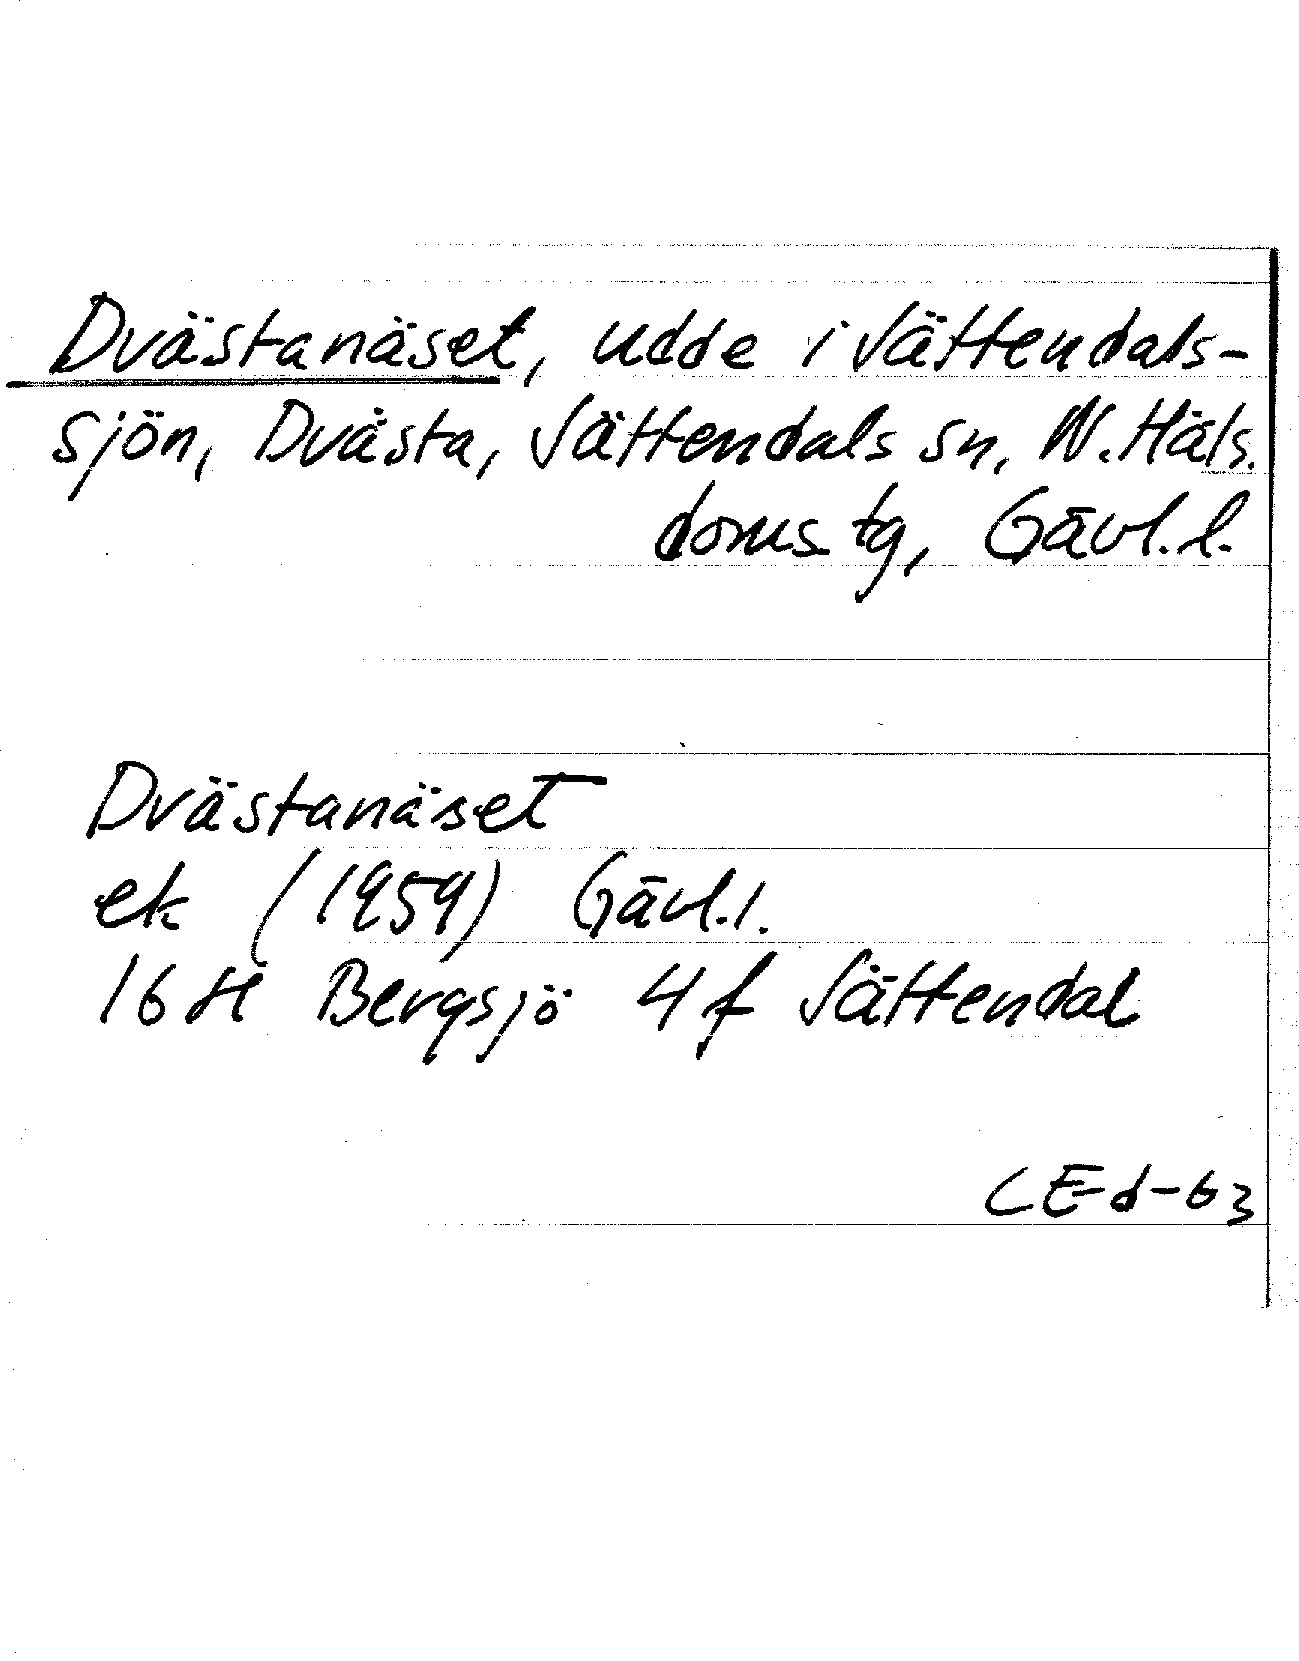 Dvästanäset, udde i Jättendals-
sjön, Dvästa, Jättendals sn, N. Häls.
doms tg, Gävl. l.
Dvästanäset
ek (1959) Gävl. l.
16 H Bergsjö 4 f Jättendal
CEd-63